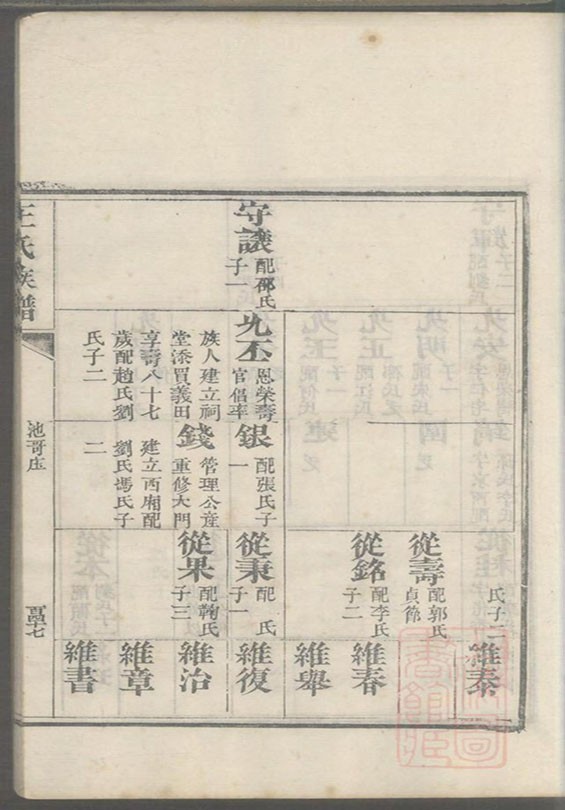 王氏族譜
池哥庄
守議
配邵氏
子一
允丕
恩榮壽
官倡率
族人建立祠
堂添買義田
享壽八十七
歲配趙氏劉
氏子二
銀
配張氏子
一
錢
管理公產
重修大門
建立西廂配
劉氏馮氏子
二
氏子二
從壽
配郭氏
貞節
從銘
配李氏
子二
從秉
配 氏
子一
從果
配鞠氏
子三
維泰
維春
維舉
維復
維治
維章
維書